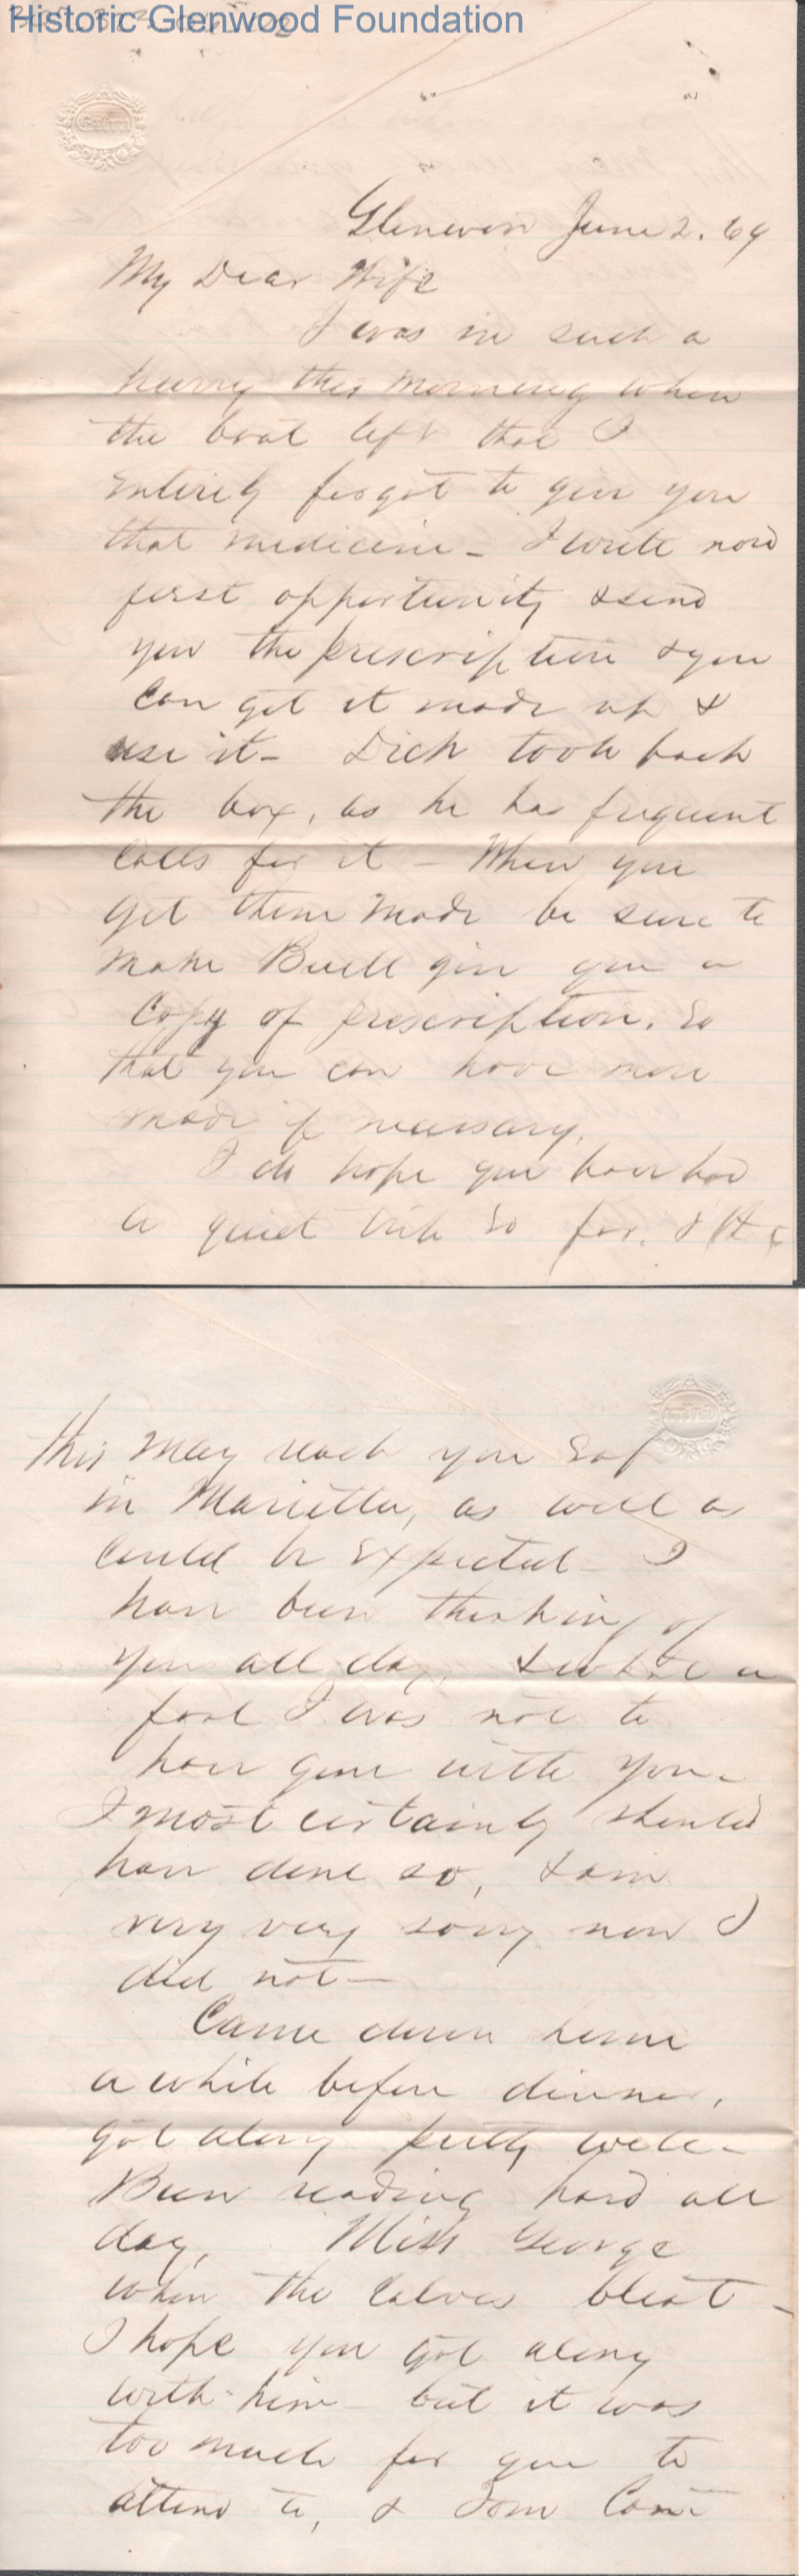 Historic Glenwood Foundation
June 2. 69
My Dear Wife
I was in such a
hurry this morning when
the boat left that I
entirely forgot to give you
that medicine - I write now
first opportunity & send
you the prescription & you
can get it made up &
use it - Dick took back
the box, as he has frequent
calls for it - When you
get them made be sure to
make Buell give you a
Copy of prescription. So
that you can have more
made if necessary.
I do hope you have had
a quiet trip so far. &
this may reach you safe
in Marietta, as well as
could be expected - I
have been thinking of
you all day. & what a
fool I was not to
have gone with you -
I most certainly should
have done so, & am
very very sorry now I
did not -
Came down home
a while before dinner,
got along pretty well -
Been reading hard all
day, Miss George
when the calves bleat -
I hope you got along
with him - but it was
too much for you to
attend to, &